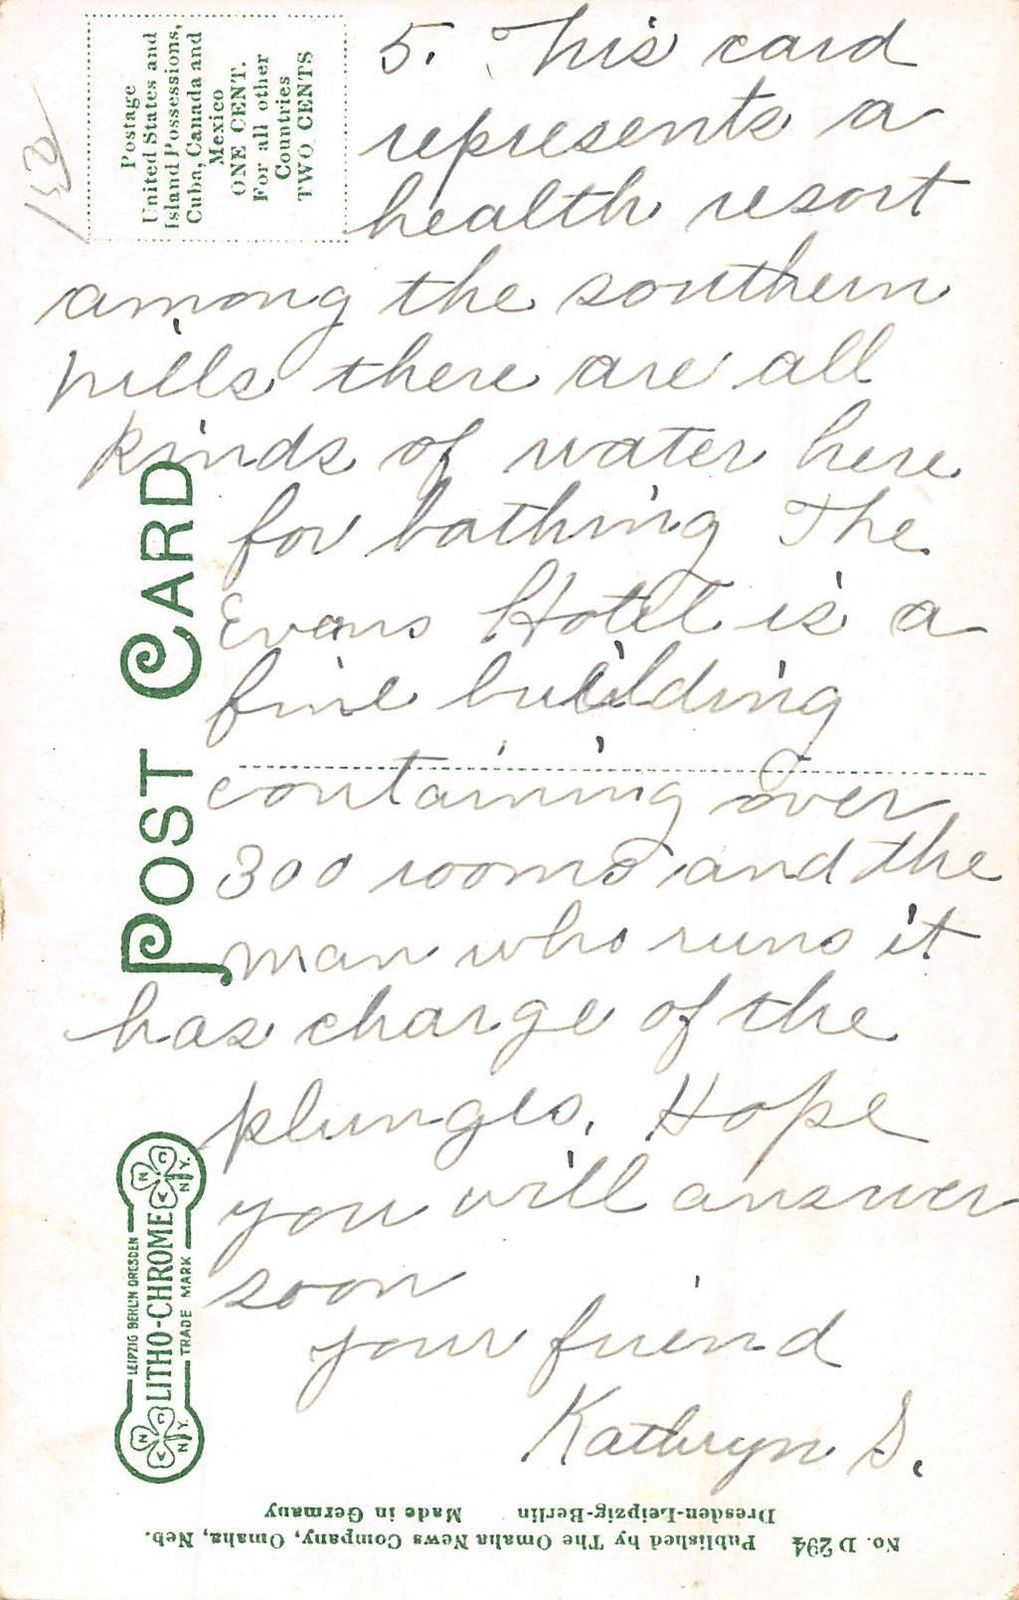 5. This card
represents a
health resort
among the southern
hills there are all
kinds of water here
for bathing The
Evans Hotel is a
fine building
containing over
300 rooms and the
man who runs it
has charge of the
plunges. Hope
you will answer
soon
your friend
Kathryn S.
Postage
United States and
Island Possessions,
Cuba, Canada and
Mexico
ONE CENT.
For all other
Countries
TWO CENTS
POST CARD
LEIPZIG BERLIN DRESDEN
LITHO-CHROME
TRADE MARK
N C V N.Y.
N C V N.Y.
No. D 294 Published by The Omaha News Company, Omaha, Neb.
Dresden-Leipzig-Berlin Made in Germany